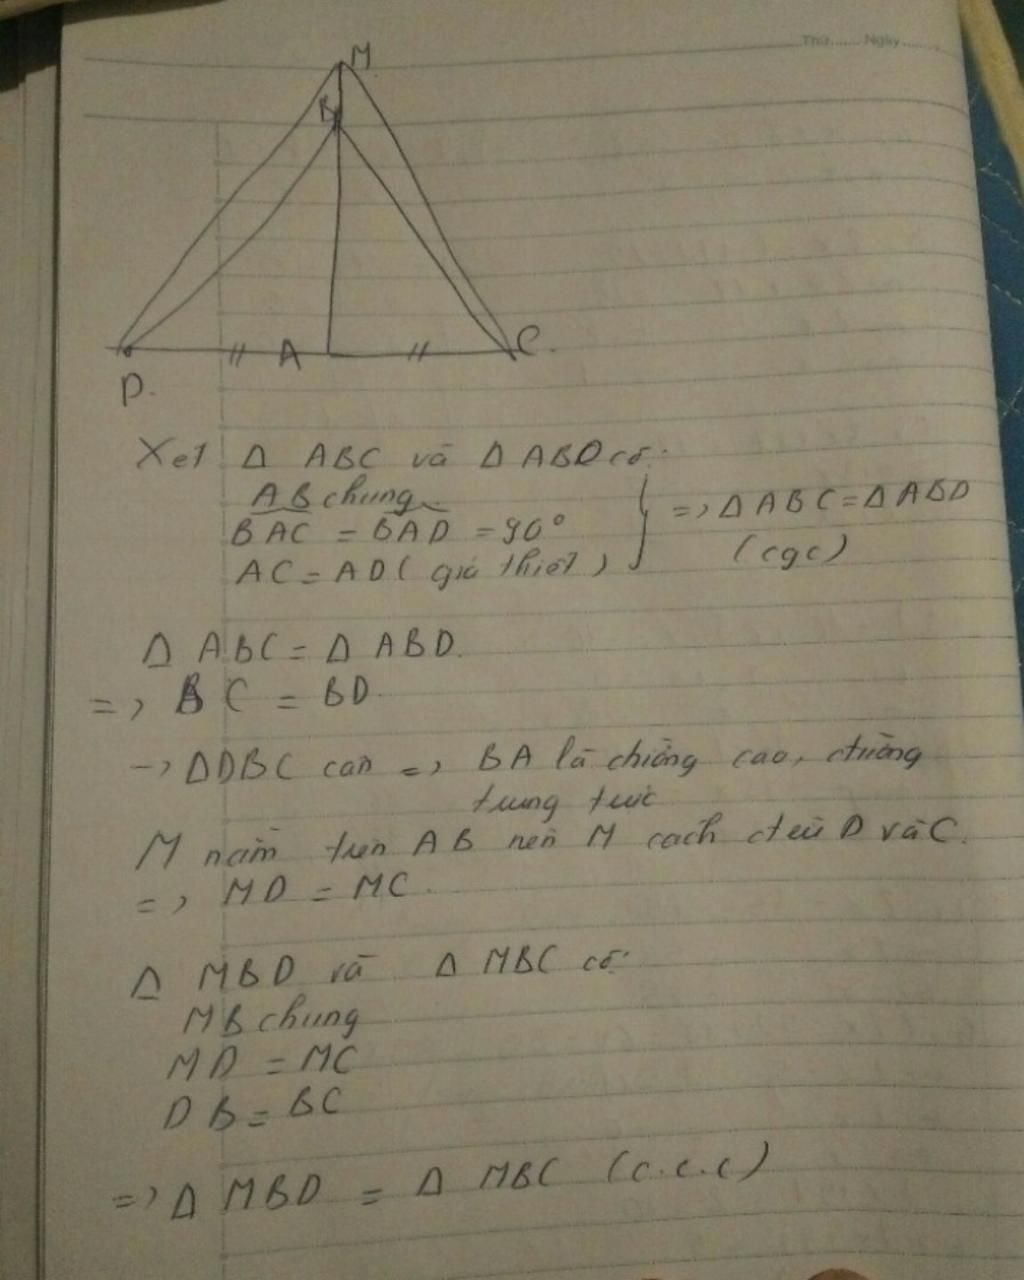 Thứ...... Ngày......
M
B
A
C.
D.
Xet Δ ABC và Δ ABD có:
AB chung
BAC = BAD = 90°
AC = AD ( giả thiết )
=> Δ ABC = Δ ABD
(cgc)
Δ ABC = Δ ABD.
=> BC = BD.
-> ΔDBC cân => BA là chiờng cao, đường
trung trực
M nằm trên AB nên M cách đều D và C.
=> MD = MC.
Δ MBD và Δ MBC có:
MB chung
MD = MC
DB = BC
=> Δ MBD = Δ MBC (c.c.c)